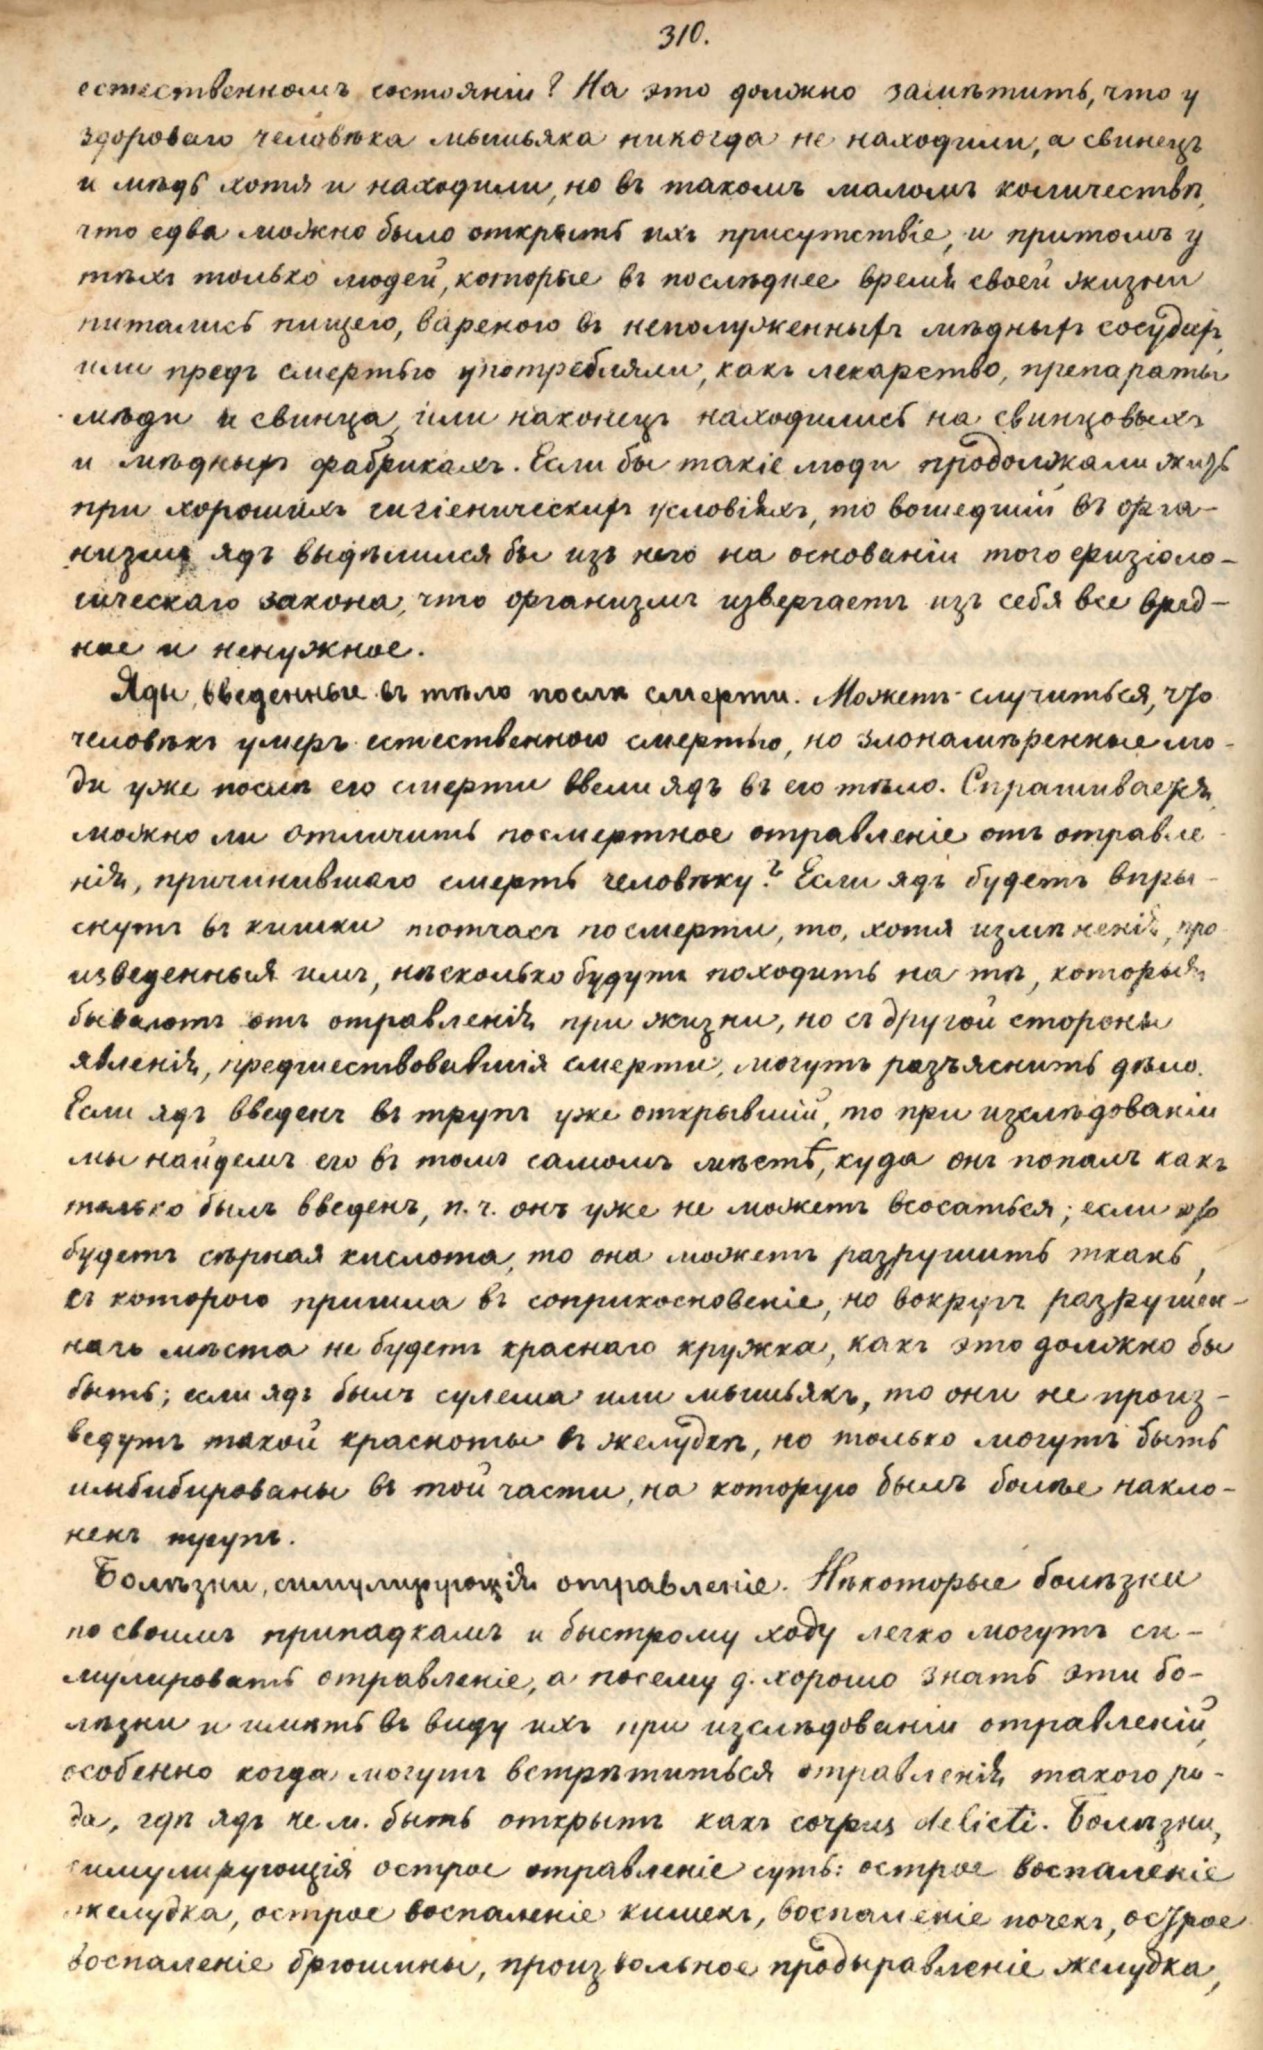 310.
естественномъ состояніи? На это должно замѣтить, что у
здороваго человѣка мышьяка никогда не находили, а свинецъ
и мѣдь хотя и находили, но въ такомъ маломъ количествѣ,
что едва можно было открыть ихъ присутствіе, и притомъ у
тѣхъ только людей, которые въ послѣднее время своей жизни
питались пищею, вареною въ неполуженныхъ мѣдныхъ сосудахъ,
или предъ смертью употребляли, какъ лекарство, препараты
мѣди и свинца, или наконецъ находились на свинцовыхъ
и мѣдныхъ фабрикахъ. Если бы такіе люди продолжали жизь
при хорошихъ гигіеническихъ условіяхъ, то вошедшій въ орга-
низмъ ядъ выдѣлился бы изъ него на основаніи того физіоло-
гическаго закона, что организмъ извергаетъ изъ себя все вред-
ное и ненужное.
Яды, введенные въ тѣло послѣ смерти. Можетъ случиться, что
человѣкъ умеръ естественною смертью, но злонамѣренные лю-
ди уже послѣ его смерти ввели ядъ въ его тѣло. Спрашивается,
можно ли отличить посмертное отравленіе отъ отравле-
нія, причинившаго смерть человѣку? Если ядъ будетъ впры-
снутъ въ кишки тотчасъ по смерти, то, хотя измѣненія, про-
изведенныя имъ, нѣсколько будутъ походить на тѣ, которыя
бываютъ отъ отравленія при жизни, но съ другой стороны
явленія, предшествовавшія смерти, могутъ разъяснить дѣло.
Если ядъ введенъ въ трупъ уже открывшій, то при изслѣдованіи
мы найдемъ его въ томъ самомъ мѣстѣ, куда онъ попалъ какъ
только былъ введенъ, п. ч. онъ уже не можетъ всосаться; если это
будетъ сѣрная кислота, то она можетъ разрушить ткань,
съ которою пришла въ соприкосновеніе, но вокругъ разрушен-
наго мѣста не будетъ краснаго кружка, какъ это должно бы
быть; если ядъ былъ сулема или мышьякъ, то они не произ-
ведутъ такой красноты въ желудкѣ, но только могутъ быть
имбибированы въ той части, на которую былъ болѣе накло-
ненъ трупъ.
Болѣзни, симулирующія отравленіе. Нѣкоторые болѣзни
по своимъ припадкамъ и быстрому ходу легко могутъ си-
мулировать отравленіе, а посему д. хорошо знать эти бо-
лѣзни и имѣть въ виду ихъ при изслѣдованіи отравленій,
особенно когда могутъ встрѣтиться отравленія такого ро-
да, гдѣ ядъ не м. быть открытъ какъ corpus delicti. Болѣзни,
симулирующія острое отравленіе суть: острое воспаленіе
желудка, острое воспаленіе кишекъ, воспаленіе почекъ, острое
воспаленіе брюшины, произвольное продыравленіе желудка,